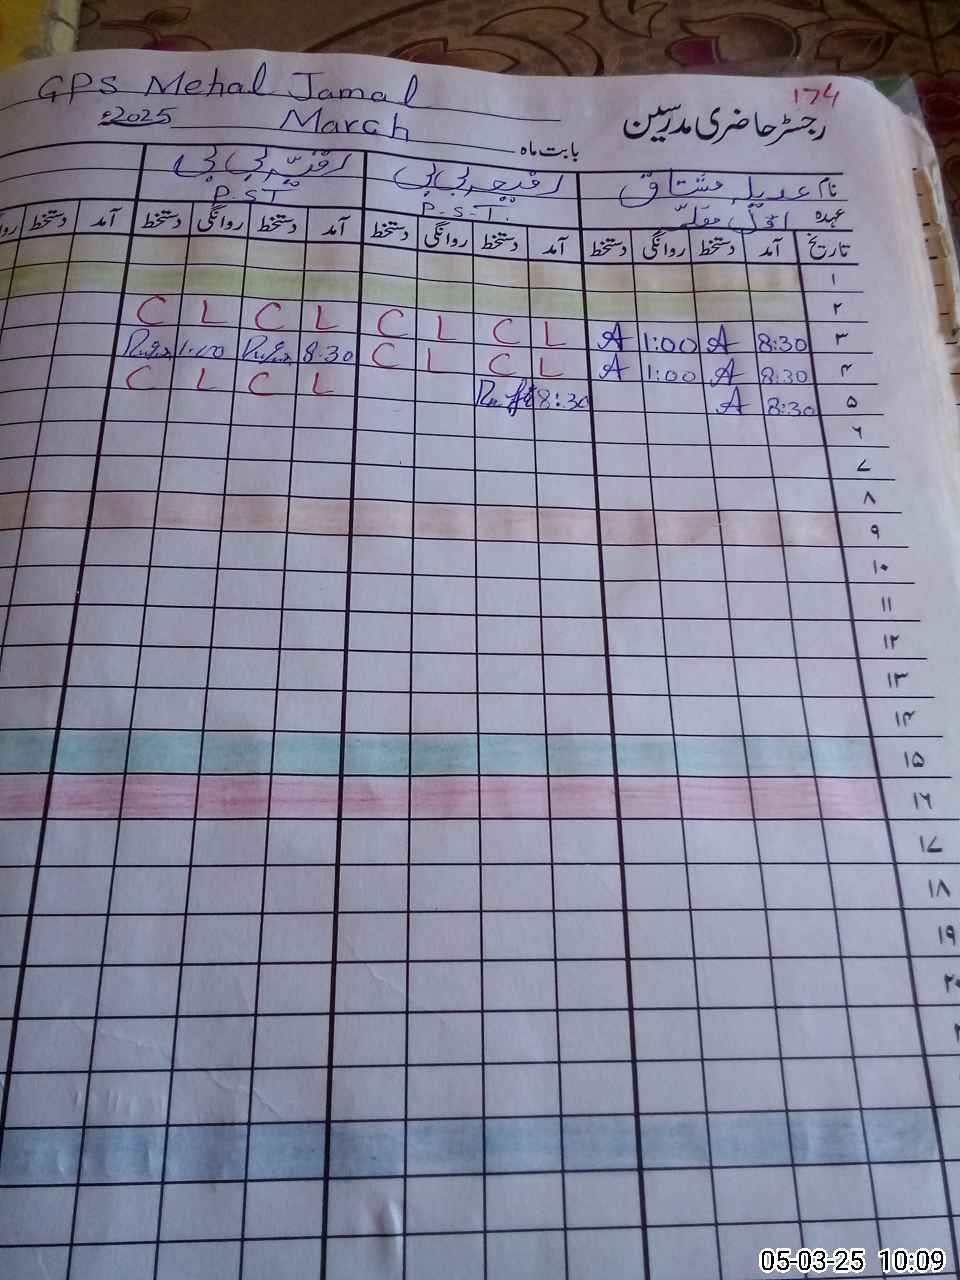 GPS Mehal Jamal
174
رجسٹر حاضری مدرسین
بابت ماہ March 2025ء
نام عدیلہ مشتاق رفیعہ بی بی
عہدہ P.S.T. P.ST
تاریخ آمد دستخط روانگی دستخط آمد دستخط روانگی دستخط آمد دستخط روانگی دستخط آمد دستخط
۱
۲
۳ 8:30 A 1:00 A L C L C L C L C
۴ 8:30 A 1:00 A L C L C 8:30
۵ 8:30 A 8:30 L C L C
۶
۷
۸
۹
۱۰
۱۱
۱۲
۱۳
۱۴
۱۵
۱۶
۱۷
۱۸
۱۹
۲۰
05-03-25 10:09